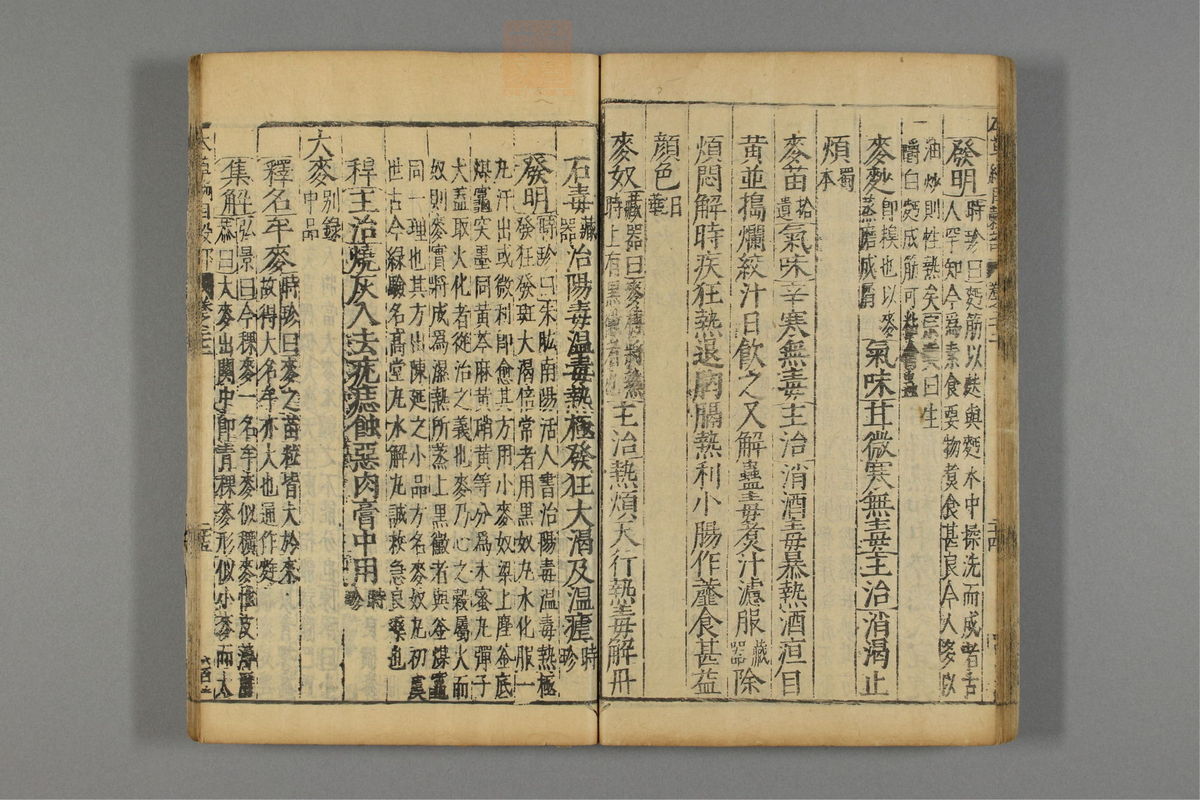 發明時珍曰麪筋以麩與麪水中揉洗而成者古
人罕知今爲素食要物煮食甚良今人多以
油炒則性熱矣宗奭曰生
嚼白麪成筋可粘禽蟲
麥麨即糗也以麥蒸磨成屑氣味甘微寒無毒主治消渴止
煩蜀本
麥苗拾遺氣味辛寒無毒主治消酒毒暴熱酒疸目
黃並搗爛絞汁日飲之又解蠱毒煮汁濾服藏器除
煩悶解時疾狂熱退胸膈熱利小腸作虀食甚益
顔色日華
麥奴藏器曰麥穗將熟時上有黑黴者也主治熱煩天行熱毒解丹
石毒藏器治陽毒温毒熱極發狂大渴及温瘧時珍
發明時珍曰朱肱南陽活人書治陽毒温毒熱極
發狂發斑大渴倍常者用黑奴丸水化服一
丸汗出或微利即愈其方用小麥奴梁上塵釡底
煤竈突墨同黃芩麻黃硝黃等分爲末蜜丸彈子
大蓋取火化者從治之義也麥乃心之穀屬火而
奴則麥實將成爲濕熱所蒸上黑黴者與釡煤竈
同一理也其方出陳延之小品方名麥奴丸初虞
世古今錄驗名高堂丸水解丸誠救急良藥也
稈主治燒灰入去疣痣蝕惡肉膏中用時珍
大麥別錄中品
釋名牟麥時珍曰麥之苗粒皆大於來
故得大名牟亦大也通作麰
集解弘景曰今稞麥一名牟麥似穬麥惟皮薄爾
恭曰大麥出關中即青稞麥形似小麥而大